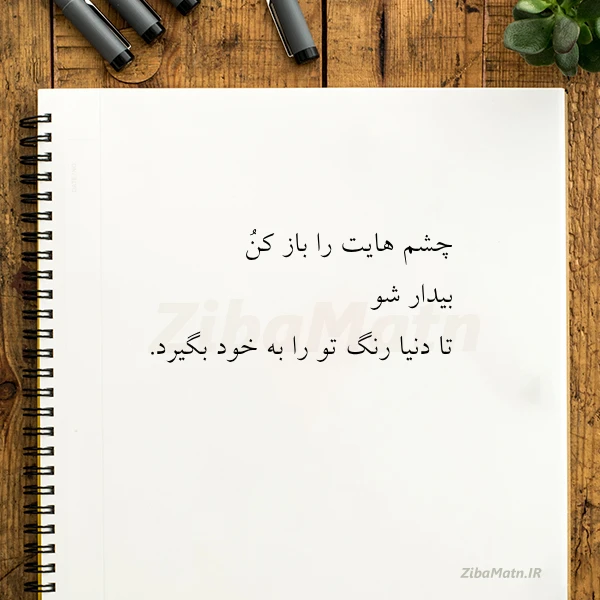 چشم هایت را باز کنُ
بیدار شو
تا دنیا رنگ تو را به خود بگیرد.
ZibaMatn
ZibaMatn.IR